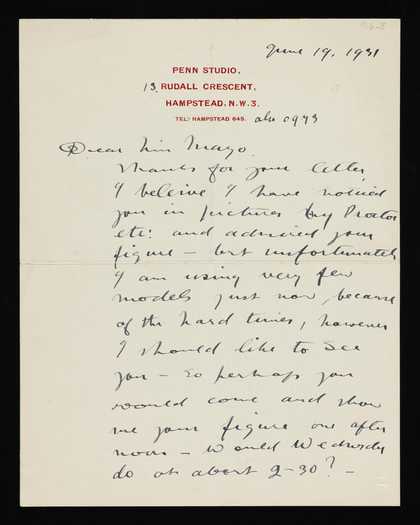 June 19, 1931
PENN STUDIO,
13, RUDALL CRESCENT,
HAMPSTEAD. N.W.3.
TEL: HAMPSTEAD 645. also 0973
Dear Miss Mayo.
Thanks for your letter,
I beleive I have noticed
you in pictures by Procter
etc: and admired your
figure – but unfortunately
I am using very few
models just now, because
of the hard times, however
I should like to see
you – so perhaps you
would come and show
me your figure one after
noon – Would Wednesday
do at about 2-30? –